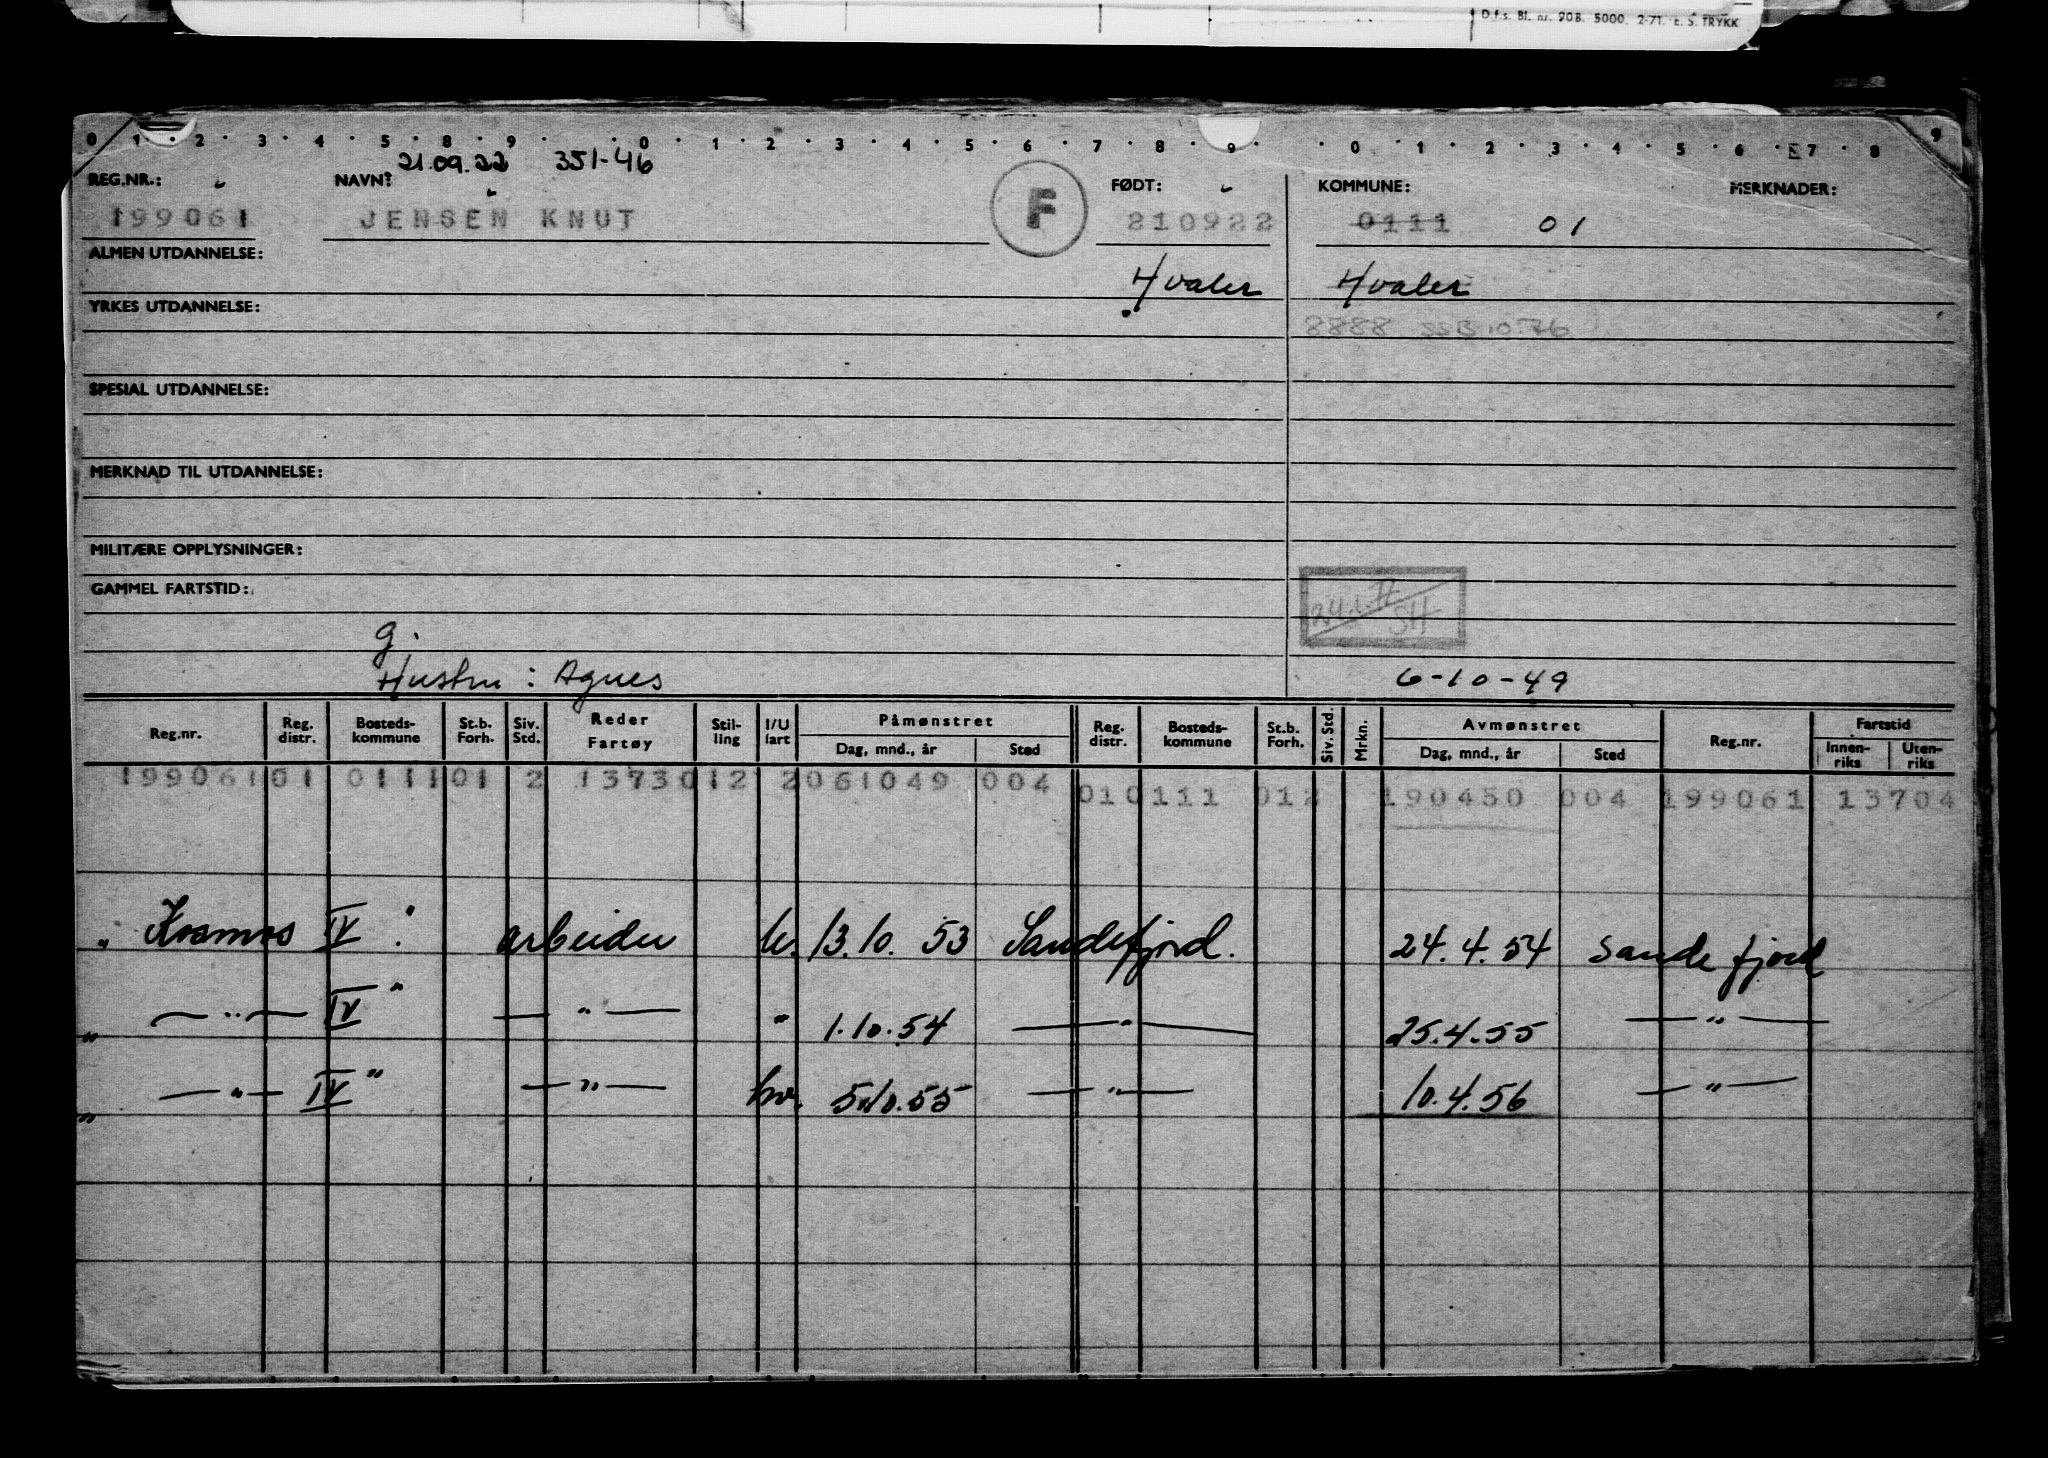 D.f.s. Bl. nr. 20B. 5000. 2-71. E. S. TRYKK
0 1 2 3 4 5 8 9 0 1 2 3 4 5 6 7 8 9 0 1 2 3 4 5 6 7 8 9
21.09.22 351-46
REG.NR.: NAVN: FØDT: KOMMUNE: MERKNADER:
199061 JENSEN KNUT F 210922 0111 01
ALMEN UTDANNELSE:
Hvaler Hvaler
YRKES UTDANNELSE:
8888 SSB 10.76
SPESIAL UTDANNELSE:
MERKNAD TIL UTDANNELSE:
MILITÆRE OPPLYSNINGER:
GAMMEL FARTSTID:
24.1.77 SH
g.
Hustru : Agnes 6-10-49
Reg.nr. Reg. distr. Bosteds- kommune St.b. Forh. Siv. Std. Reder Fartøy Stil- ling I/U fart Påmønstret Dag, mnd., år Sted Reg. distr. Bosteds- kommune St.b. Forh. Siv. Std. Mrkn. Avmønstret Dag, mnd., år Sted Reg.nr. Fartstid Innen- riks Uten- riks
199061 01 0111 01 2 13730 12 2 061049 004 010111 012 190450 004 199061 13704
" Kosmos IV " arbeider u. 13.10. 53 Sandefjord. 24.4.54 Sandefjord
" — " — IV " — " — " 1.10.54 — " — 25.4.55 — " —
" — " — IV " — " — hv. 5.10.55 — " — 10.4.56 — " —